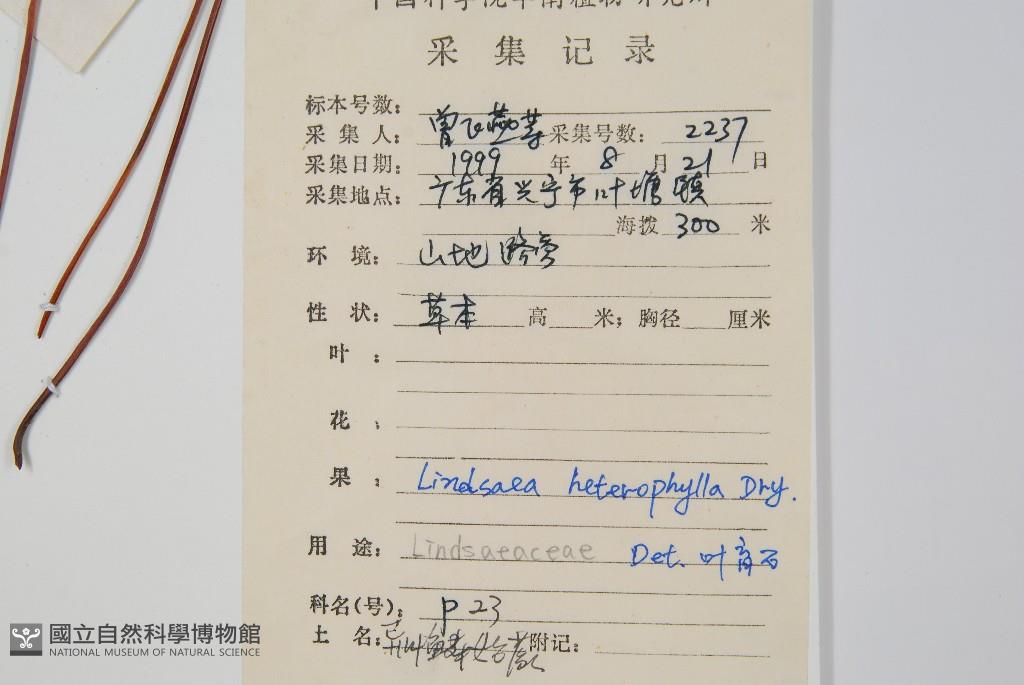 采集记录
标本号数:
采集人: 曾飞燕等 采集号数: 2237
采集日期: 1999 年 8 月 21 日
采集地点: 广东省兴宁市叶塘镇
海拨 300 米
环 境: 山地路旁
性 状: 草本 高 米; 胸径 厘米
叶 :
花 :
果 : Lindsaea heterophylla Dry.
用 途: Lindsaeaceae Det. 叶育石
科名(号): P 23
土 名: 附记:
國立自然科學博物館
NATIONAL MUSEUM OF NATURAL SCIENCE